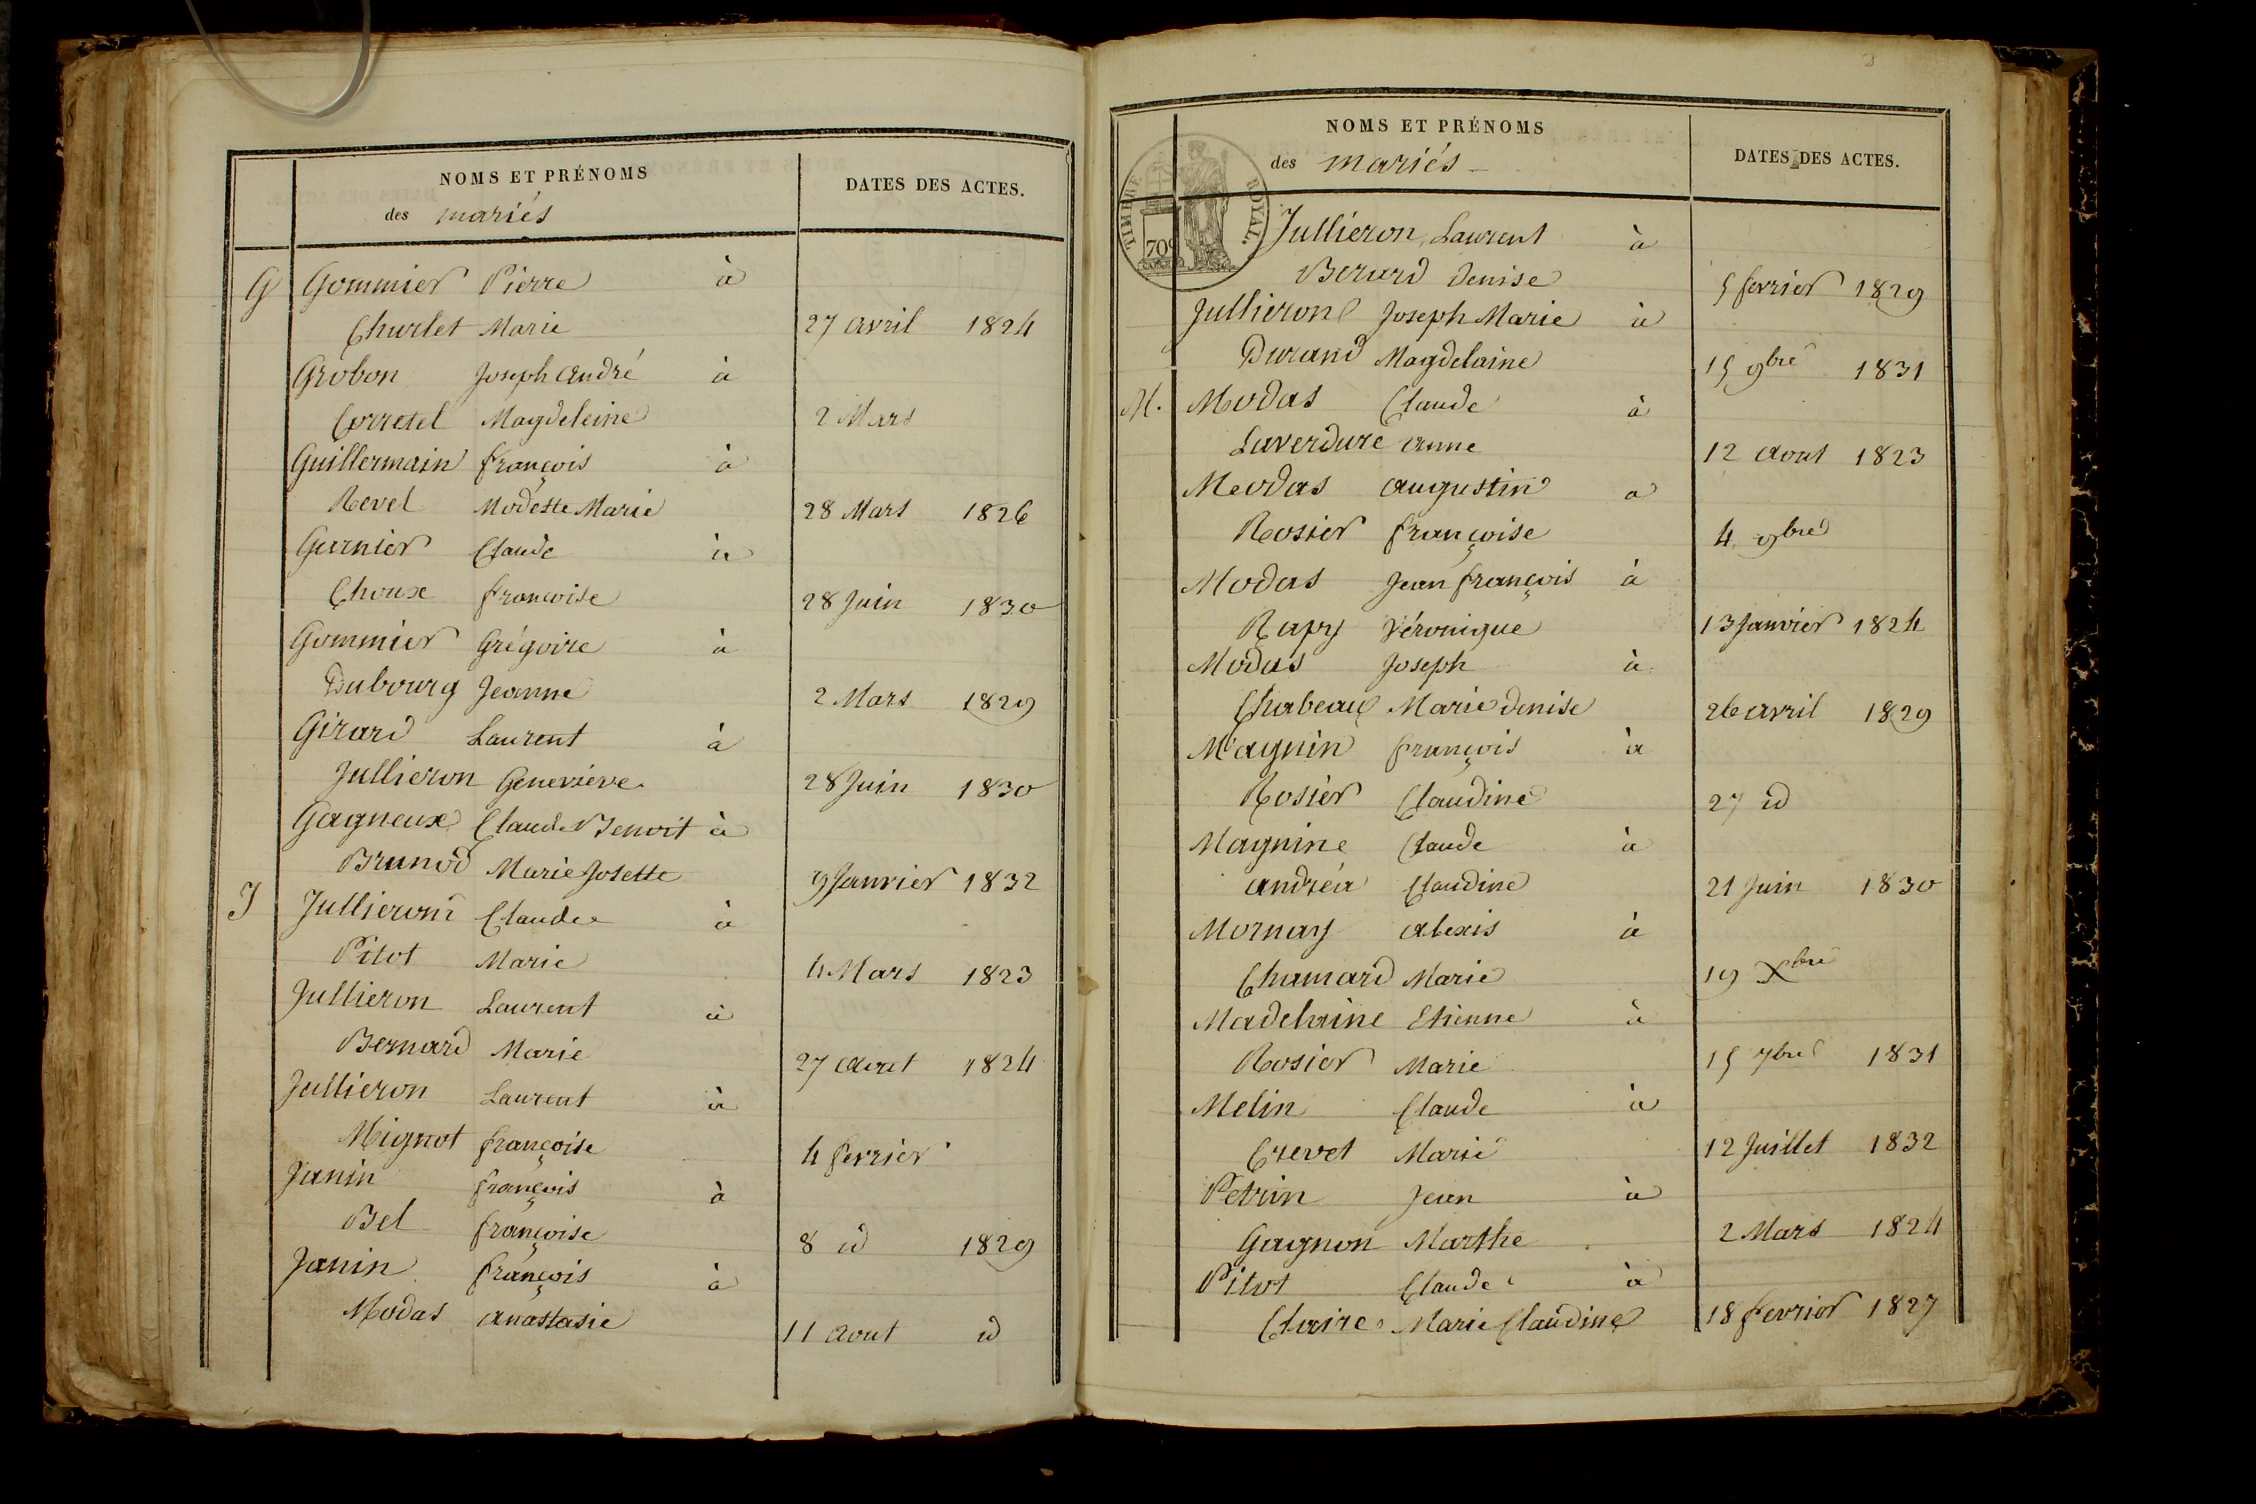 NOMS ET PRÉNOMS
des mariés
DATES DES ACTES.
G Gommier Pierre à
Churlet Marie 27 avril 1824
Grobon Joseph André à
Corretel Magdeleine 2 Mars
Guillermain françois à
Revel Modeste Marie 28 Mars 1826
Garnier Claude à
Choux francoise 28 Juin 1830
Gommier Grégoire à
Dubourg Jeanne 2 Mars 1829
Girard Laurent à
Jullieron Genevieve 28 Juin 1830
Gagneux Claude Benoit à
Brunod Marie Josette 9 Janvier 1832
J Jullieron Claude à
Pitot Marie 4 Mars 1823
Jullieron Laurent à
Bernard Marie 27 1824
Jullieron Laurent à
Mignot françoise 4 fevrier
Janin françois à
Bel françoise 8 id 1829
Janin françois à
Modas anastasie 11 Aout id
NOMS ET PRÉNOMS
des mariés
DATES DES ACTES.
TIMBRE ROYAL.
70c
Jullieron Laurent à
Berard Denise 5 fevrier 1829
Jullieron Joseph Marie à
Durand Magdelaine 15 9bre 1831
M. Modas Claude à
Laverdure anne 12 Aout 1823
Meodas augustin a
Rosier françoise 4 9bre
Modas Jean françois à
Rapy Véronique 13 Janvier 1824
Modas Joseph à
Chabeau Marie denise 26 avril 1829
Magnin françois à
Rosier Claudine 27 id
Magnine Claude à
andréa Claudine 21 Juin 1830
Mornay alexis à
Chamard Marie 19 Xbre
Madelaine Etienne à
Rosier Marie 15 7bre 1831
Melin Claude à
Crevet Marie 12 Juillet 1832
Petrin Jean à
Gagnon Marthe 2 Mars 1824
Pitot Claude à
Claire Marie Claudine 18 fevrier 1827